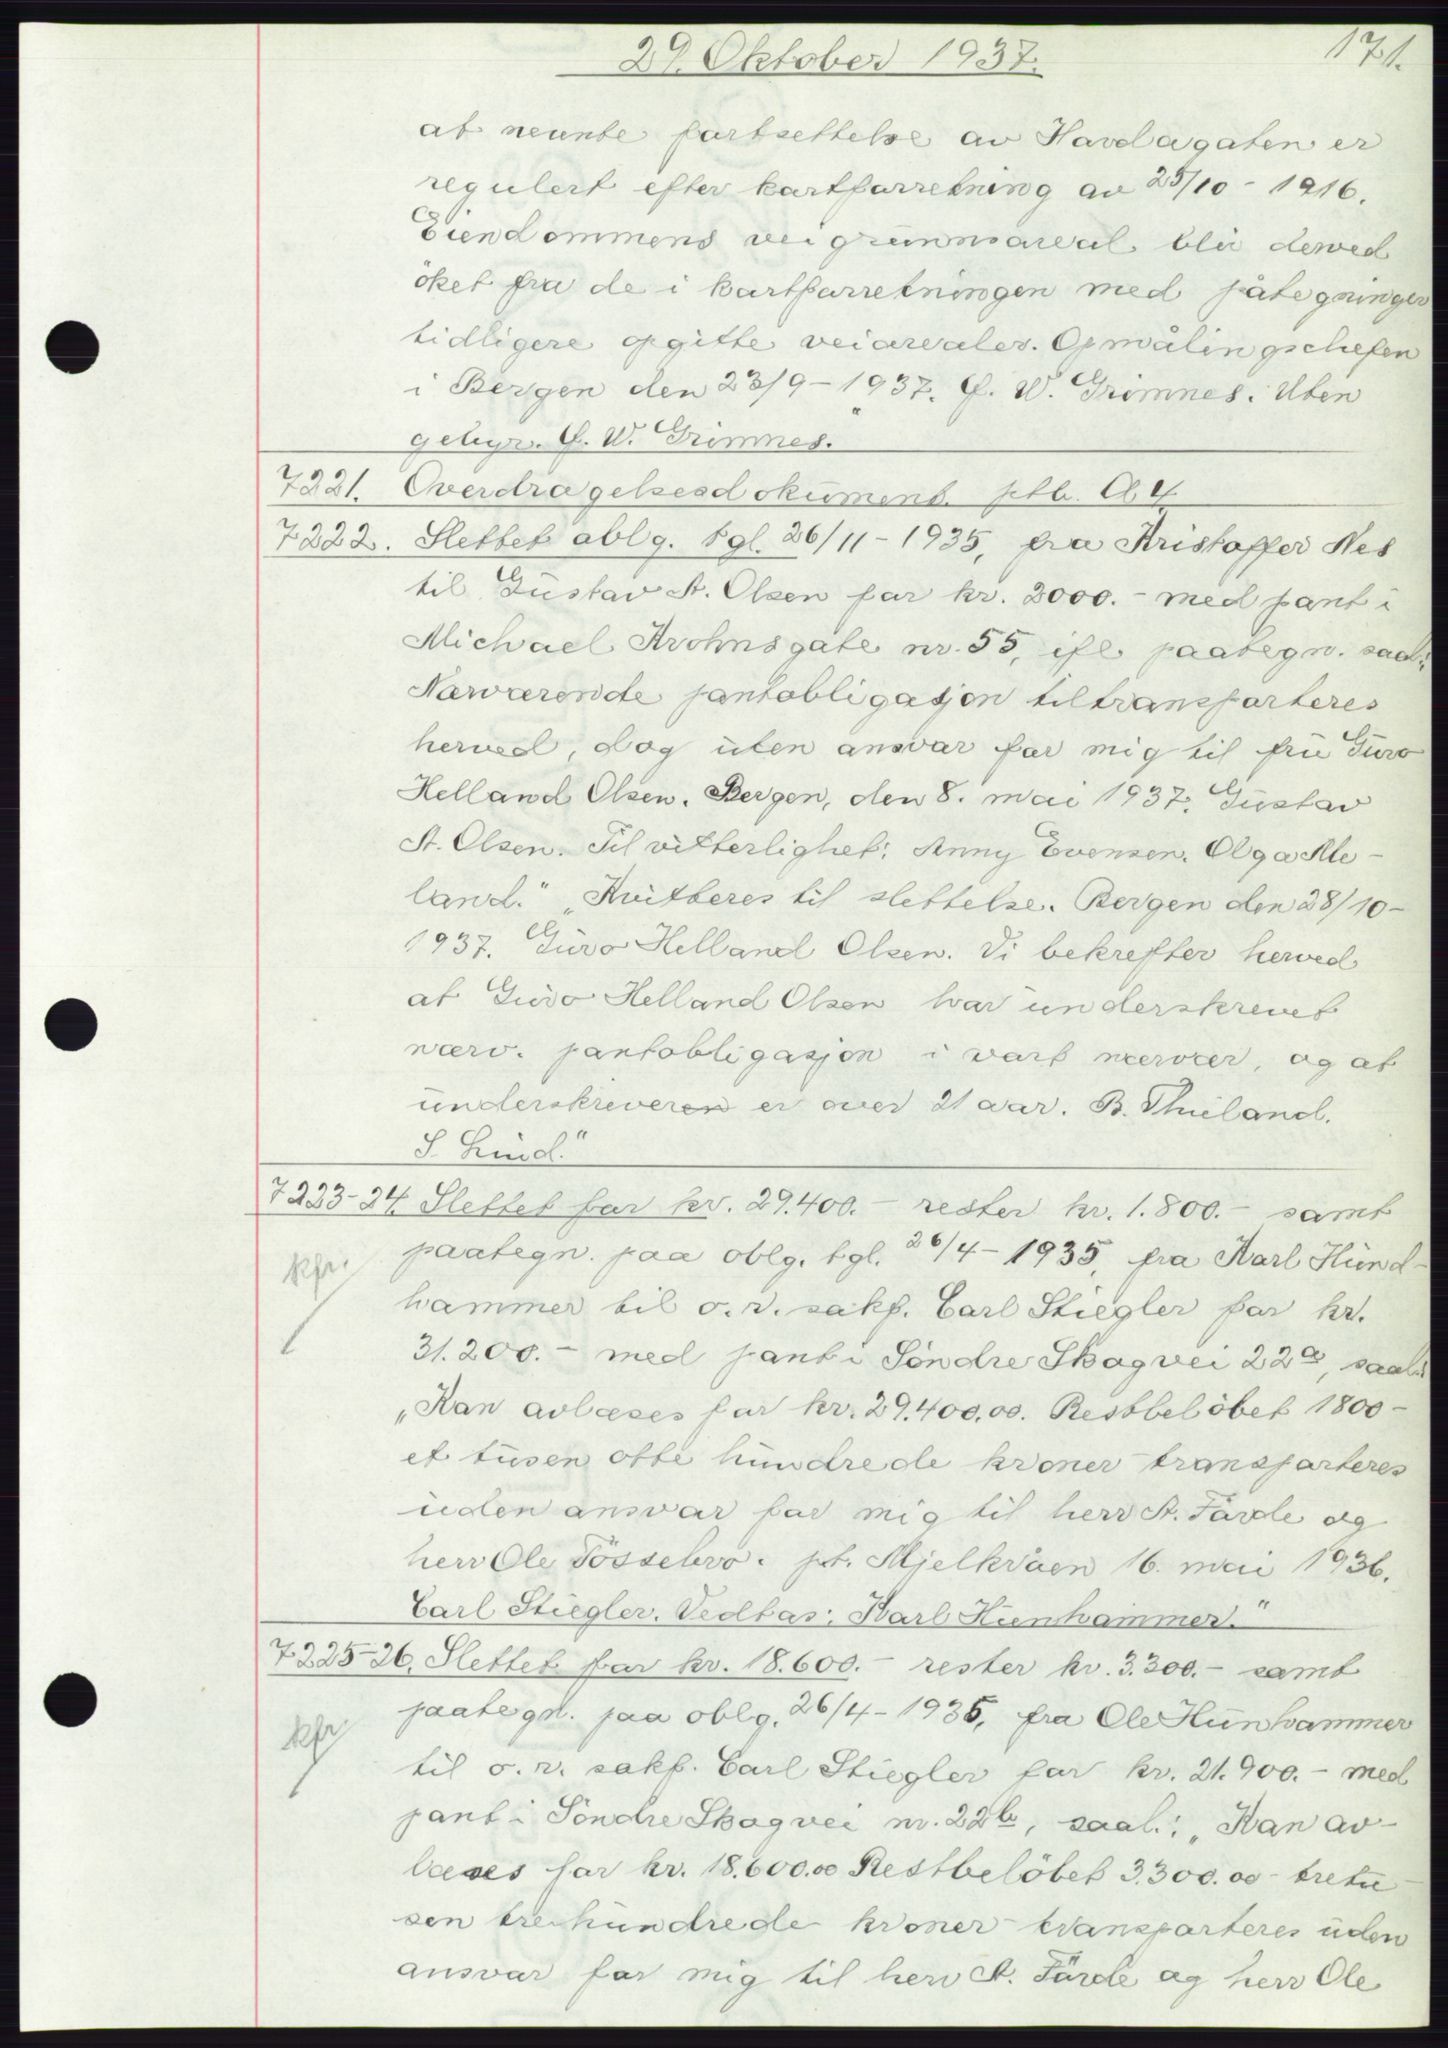 29. Oktober 1937.
171.
at nevnte fortsettelse av Havdagaten er
regulert efter kartforretning av 25/10 - 1916.
Eiendommens veigrunnsareal blir derved
öket fra de i kartforretningen med påtegninger
tidligere opgitte veiarealer. Opmålingschefen
i Bergen den 23/9 - 1937. G. W. Grimnes. Uten
gebyr. G. W. Grimnes."
7221. Overdragelsesdokument. ptb. A 4
7222. Slettet oblg. tgl. 26/11 - 1935, fra Kristoffer Nes
til Gustav A. Olsen for kr. 2000.- med pant i
Michael Krohnsgate nr. 55, ifl. paategn. saal.:
Nærværende pantobligasjon tiltransporteres
herved, dog uten ansvar for mig til fru Guro
Helland Olsen. Bergen, den 8. mai 1937. Gustav
A. Olsen. Til vitterlighet: Anny Evensen. Olga Me-
land." „Kvitteres til slettelse. Bergen den 28/10 -
1937. Guro Helland Olsen. Vi bekrefter herved
at Guro Helland Olsen har underskrevet
nærv. pantobligasjon i vart nærvær, og at
underskriveren er over 21 aar. B. Thieland.
S. Lund."
7223-24. Slettet for kr. 29.400.- rester kr. 1.800.- samt
kfr. paategn. paa oblg. tgl. 26/4 - 1935, fra Karl Hund-
hammer til o.r. sakf. Carl Stiegler for kr.
31.200.- med pant i Söndre Skogvei 22a, saal.:
„Kan avlæses for kr. 29.400.00. Restbelöbet 1800 -
et tusen otte hundrede kroner transporteres
uden ansvar for mig til herr A. Förde og
herr Ole Tösseboro. pt. Mjelkråen 16. mai 1936.
Carl Stiegler. Vedtas: Karl Hunhammer."
7225-26. Slettet for kr. 18.600.- rester kr. 3.300.- samt
kfr paategn. paa oblg. 26/4 - 1935, fra Ole Hunhammer
til o.r. sakf. Carl Stiegler for kr. 21.900.- med
pant i Söndre Skogvei nr. 22b, saal.: „Kan av-
læses for kr. 18.600.00 Restbelöbet 3.300.00 - tretu-
sen trehundrede kroner - transporteres uden
ansvar for mig til herr A. Förde og herr Ole